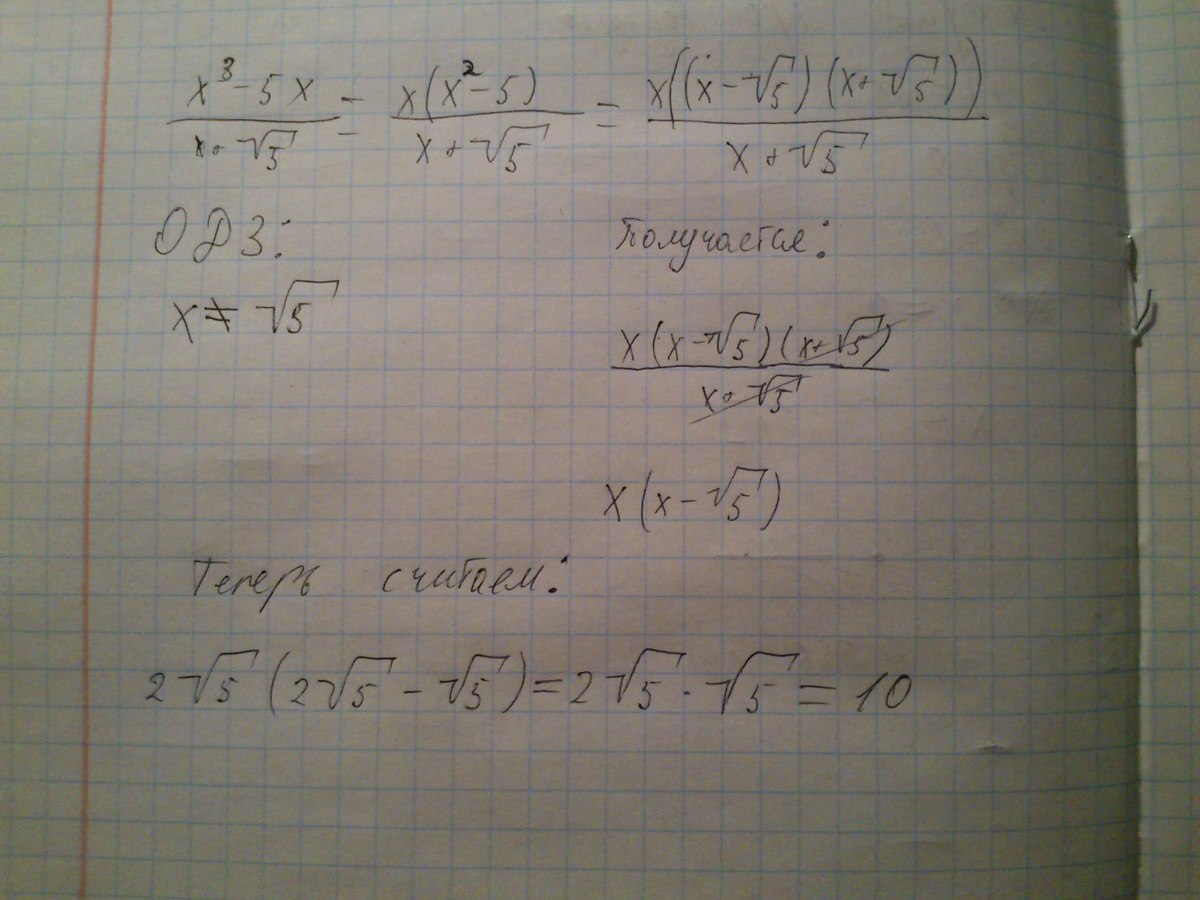 x³ - 5x / x + √5 = x(x² - 5) / x + √5 = x((x - √5)(x + √5)) / x + √5
ОДЗ:
x ≠ √5
Получается:
x(x - √5)(x + √5) / x + √5
x(x - √5)
Теперь считаем:
2√5(2√5 - √5) = 2√5 · √5 = 10